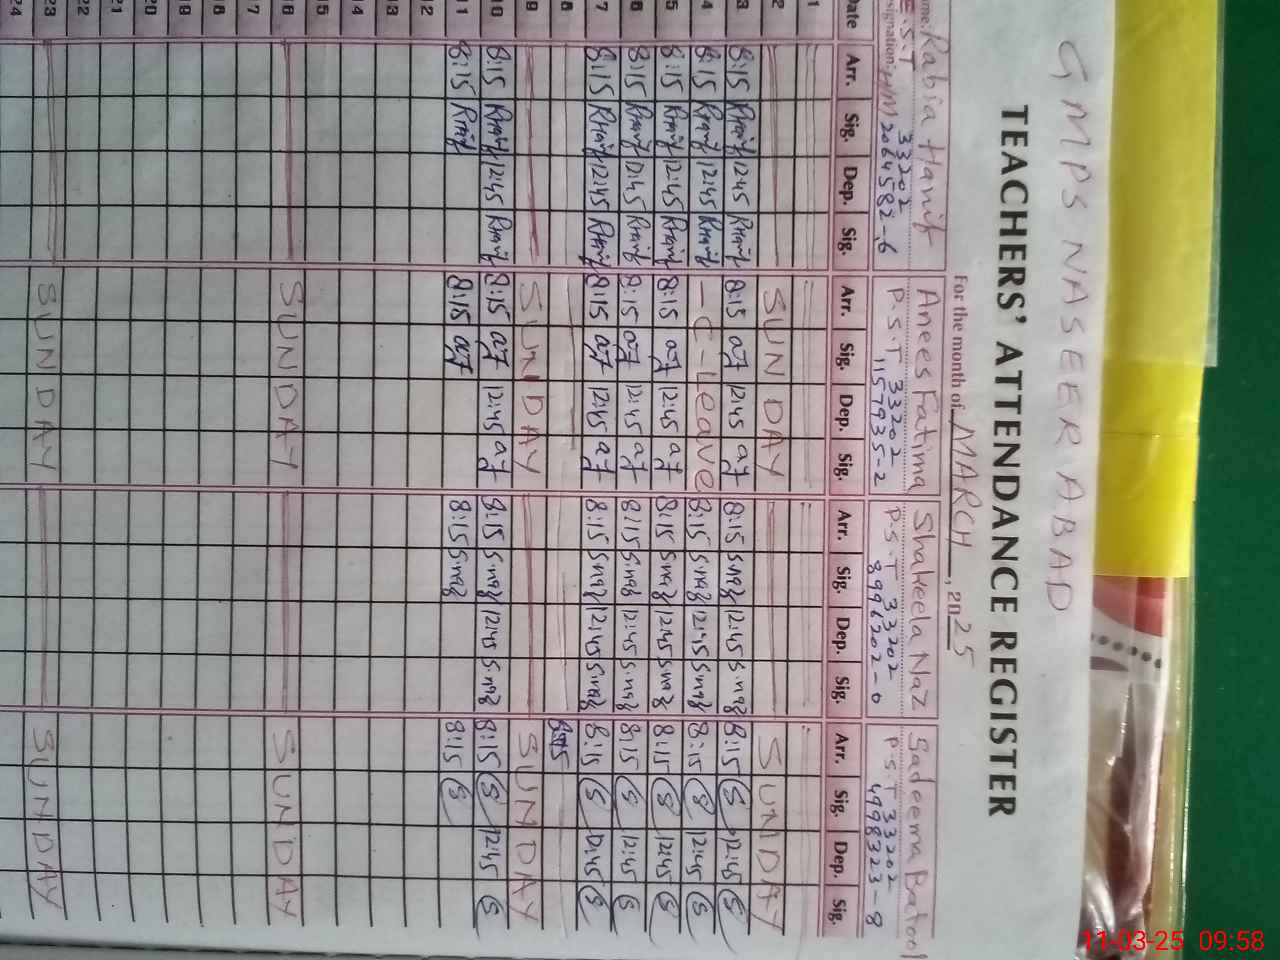 GMPS NASEERABAD
TEACHERS' ATTENDANCE REGISTER
For the month of MARCH, 2025
Rabia Hanif Anees Fatima Shakeela Naz Sadeema Batool
signation: HM P.S.T P.S.T P.S.T
33202 33202 33202 33202
2064582-6 1157935-2 8996202-0 4998323-8
Date Arr. Sig. Dep. Sig. Arr. Sig. Dep. Sig. Arr. Sig. Dep. Sig. Arr. Sig. Dep. Sig.
1
2 SUNDAY SUNDAY
3 8:15 Rhanif 12:45 Rhanif 8:15 af 12:45 af 8:15 S.naz 12:45 S.naz 8:15 S 12:45 S
4 8:15 Rhanif 12:45 Rhanif - C-Leave 8:15 S.naz 12:45 S.naz 8:15 S 12:45 S
5 8:15 Rhanif 12:45 Rhanif 8:15 af 12:45 af 8:15 S.naz 12:45 S.naz 8:15 S 12:45 S
6 8:15 Rhanif 12:45 Rhanif 8:15 af 12:45 af 8:15 S.naz 12:45 S.naz 8:15 S 12:45 S
7 8:15 Rhanif 12:45 Rhanif 8:15 af 12:45 af 8:15 S.naz 12:45 S.naz 8:15 S 12:45 S
8
9 SUNDAY SUNDAY
10 8:15 Rhanif 12:45 Rhanif 8:15 af 12:45 af 8:15 S.naz 12:45 S.naz 8:15 S 12:45 S
11 8:15 Rhanif 8:15 af 8:15 S.naz 8:15 S
12
13
14
15
16 SUNDAY SUNDAY
17
18
19
20
21
22
23 SUNDAY SUNDAY
24
11-03-25 09:58